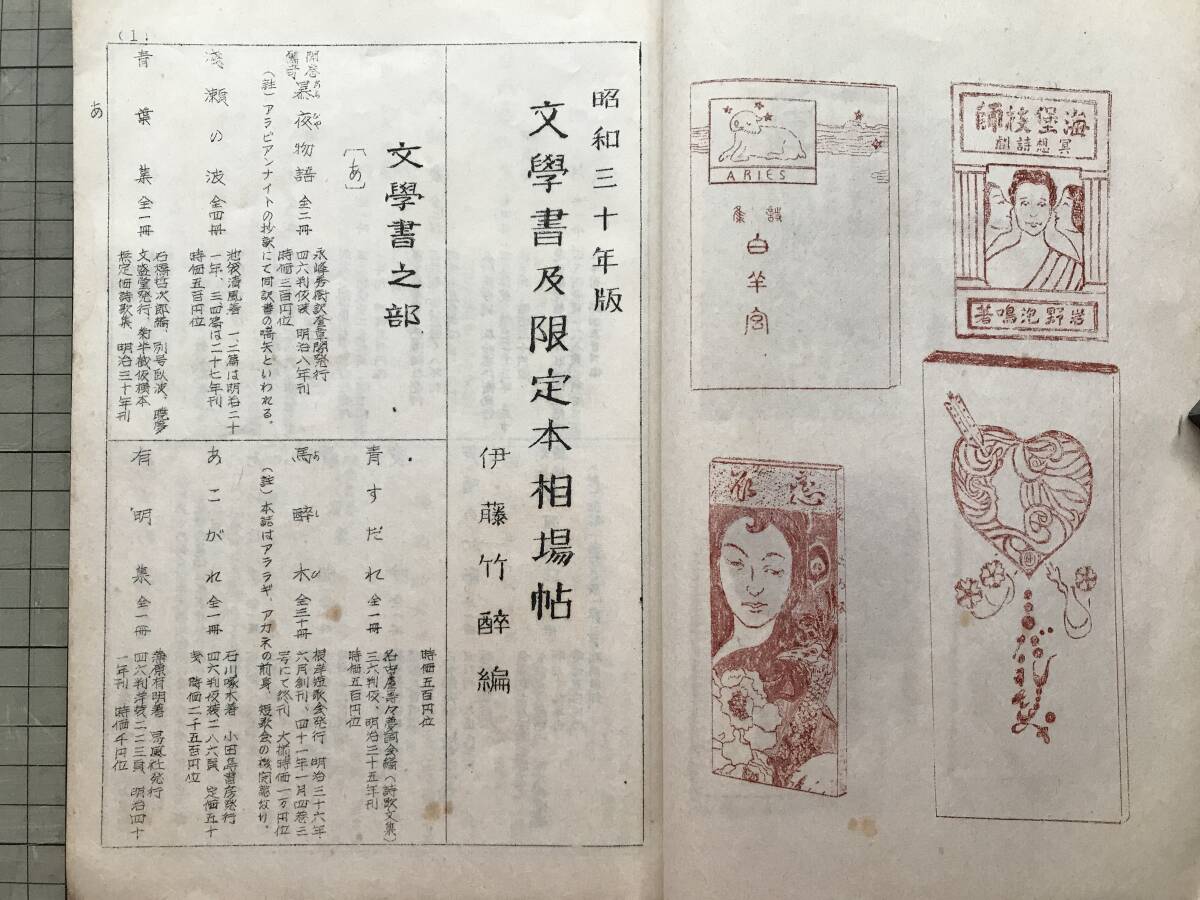 海堡技師
冥想詩劇
岩野泡鳴著
ARIES
詩集
白羊宮
恋衣
(1)
昭和三十年版
文學書及限定本相場帖
伊藤竹醉編
文學書之部
〔あ〕
開巻驚奇
暴夜物語 全二冊
あらびや
永峰秀樹訳奎章閣発行
四六判仮装 明治八年刊
時価三百円位
(註)アラビアンナイトの抄訳にて同訳書の嚆矢といわれる。
淺瀬の波 全四冊
池袋清風著 一二篇は明治二十
一年、三四篇は二十七年刊
時価五百円位
青葉集 全一冊
石橋哲次郎編、別号臥波、曉夢
文盛堂発行、菊半截仮横本
無定価詩歌集 明治三十年刊
時価五百円位
青すだれ 全一冊
名古屋寿々夢詞会編(詩歌文集)
三六判仮、明治三十五年刊
時価五百円位
馬醉木 全三十冊
あしび
根岸短歌会発行 明治三十六年
六月創刊、四十一年一月四巻三
号にて終刊 大揃時価一万円位
(註)本誌はアララギ、アカネの前身、短歌会の機関誌なり。
あこがれ 全一冊
石川啄木著 小田島書房発行
四六判仮装二八六頁 定価五十
銭 時価二千五百円位
有明集 全一冊
蒲原有明著 易風社発行
四六判洋装二二三頁、明治四十
一年刊 時価千円位
あ